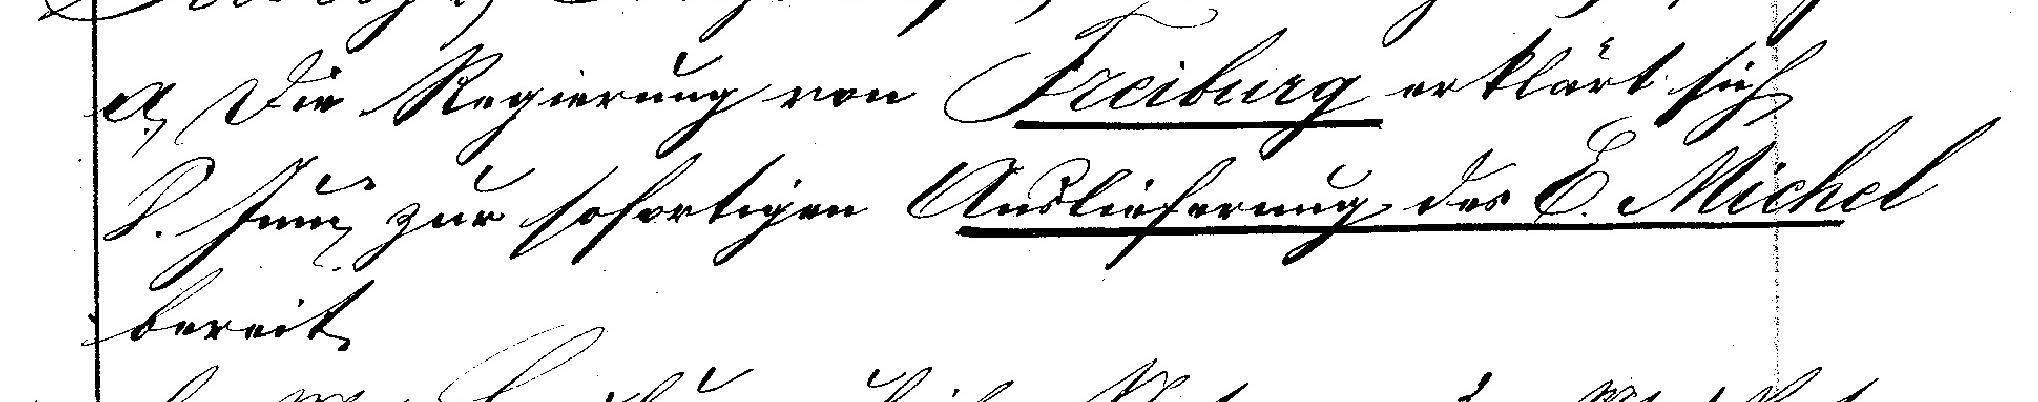 a, Die Regierung von Freiburg erklärt sich
8. Juny zur sofortigen Auslieferung des E. Michel
bereit